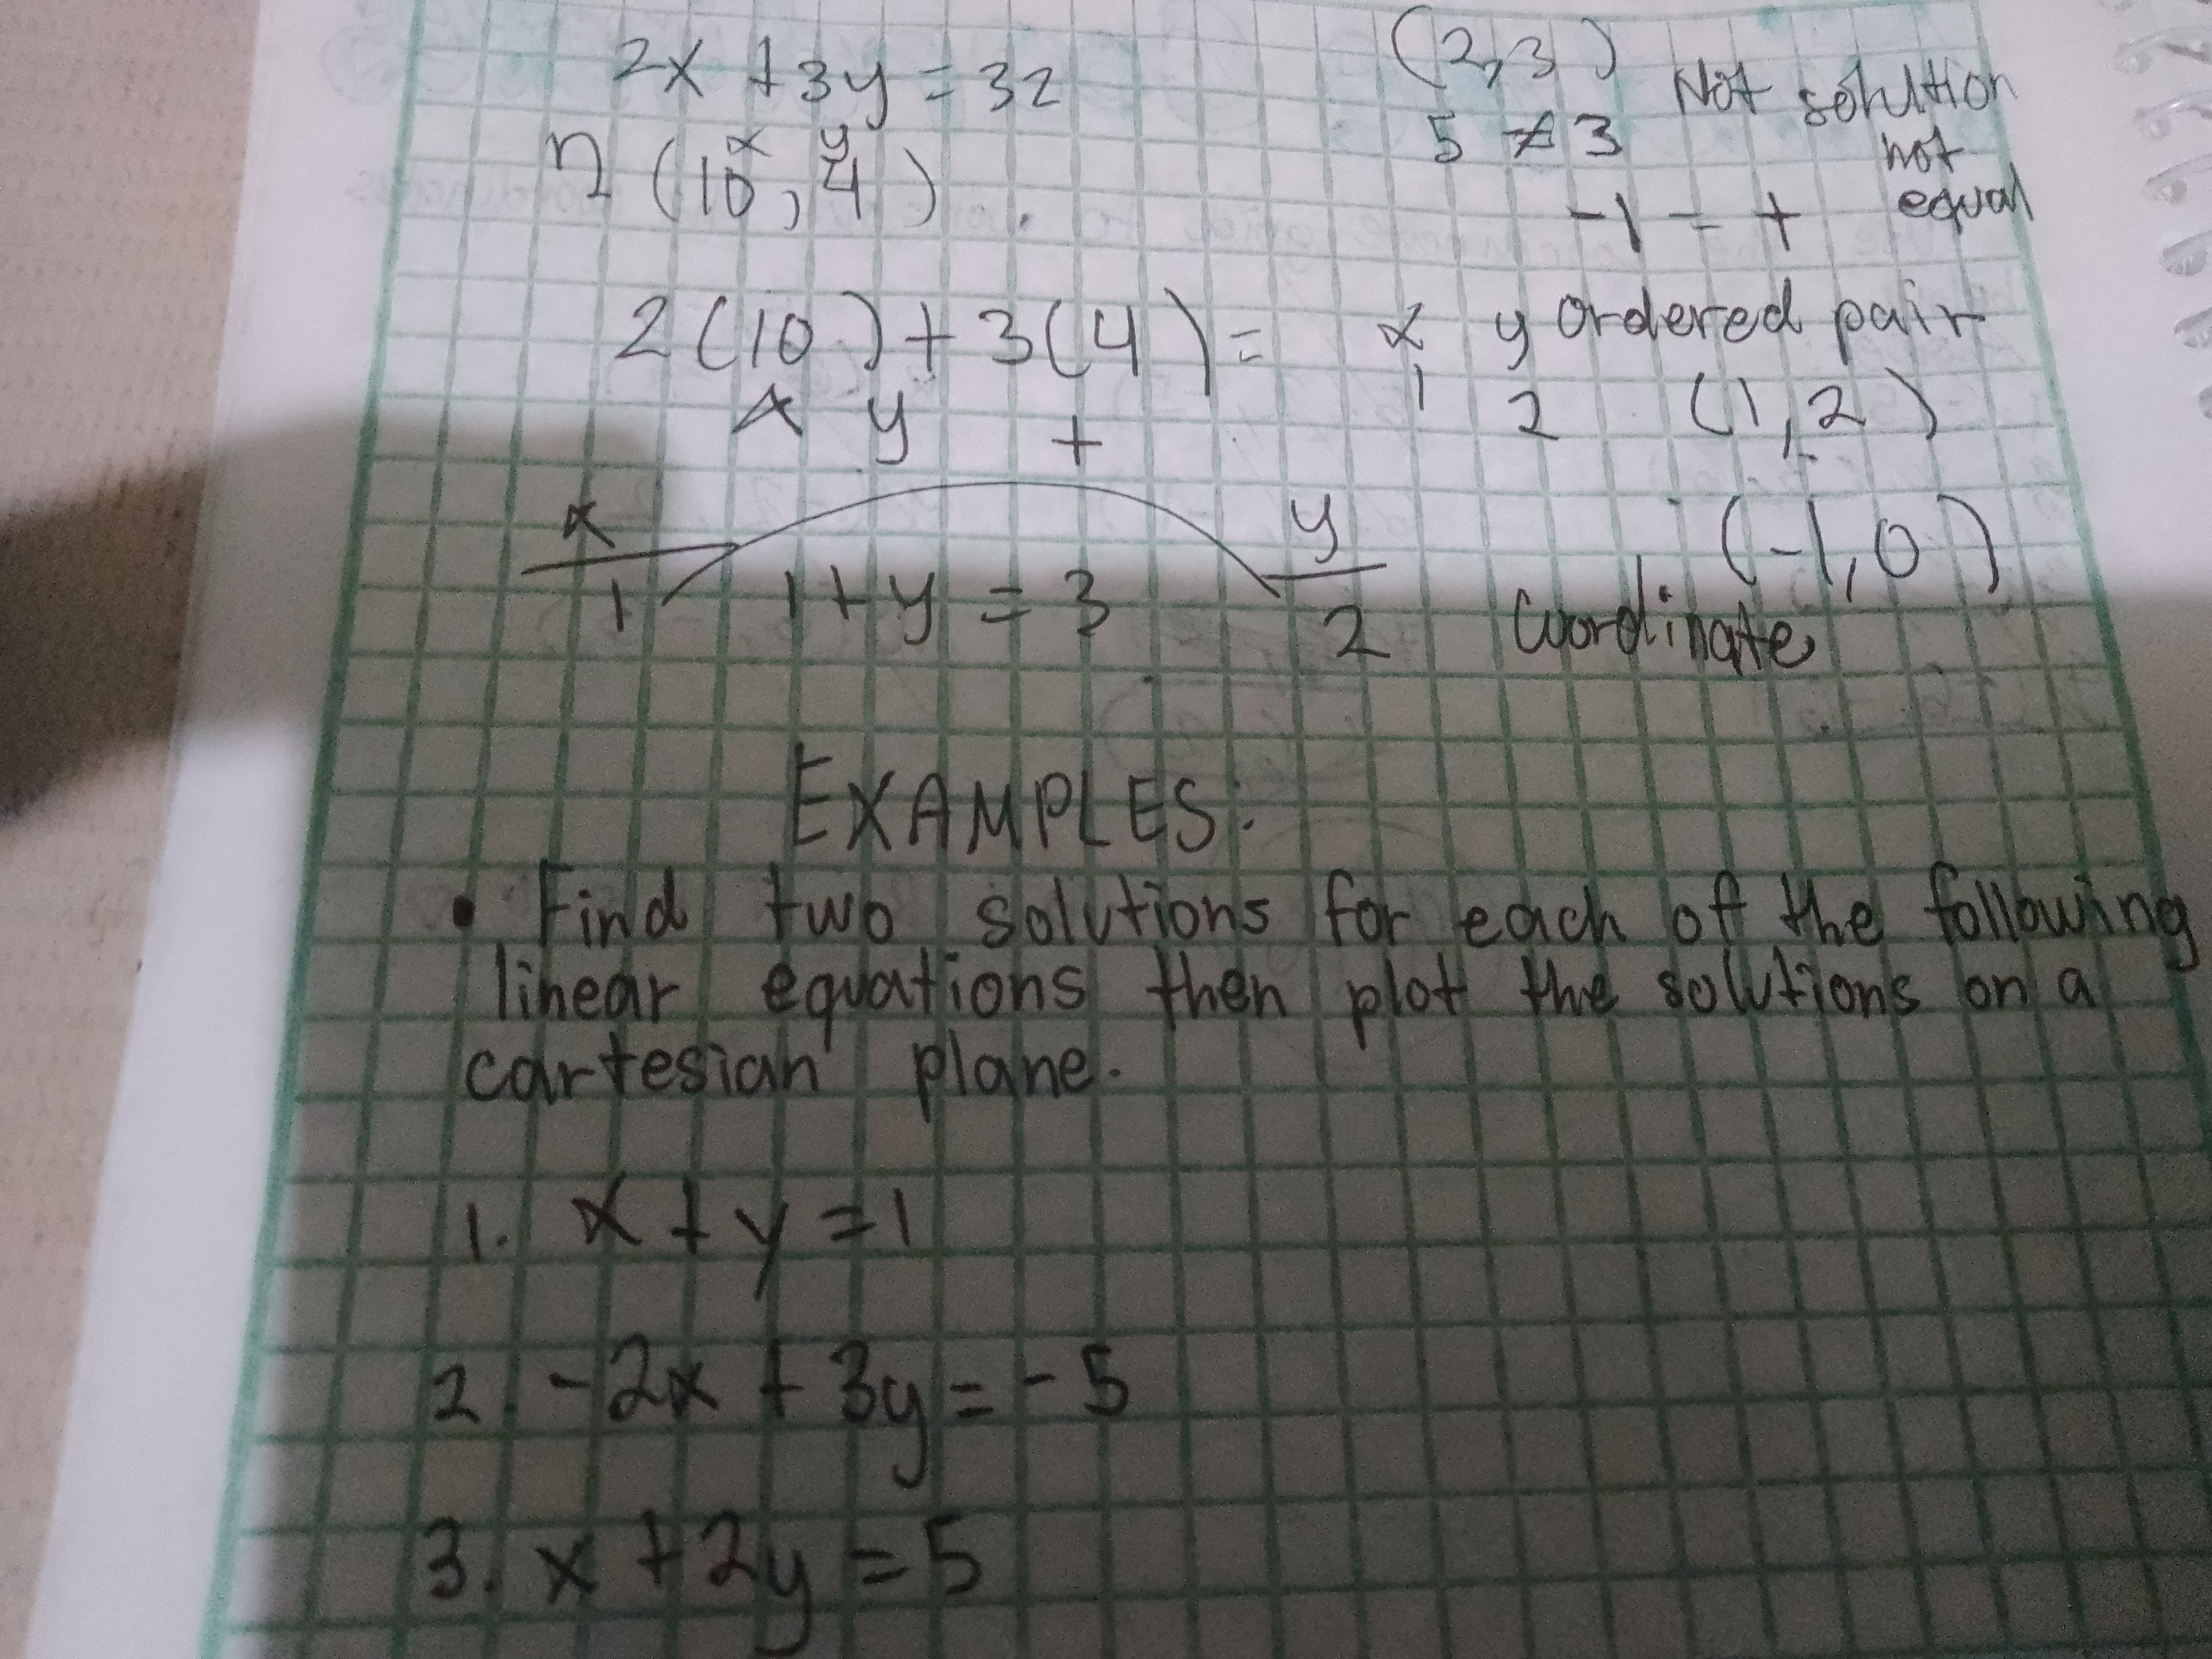 2x + 3y = 32
(2,3) Not solution
5 ≠ 3 not equal
x y
(10, 4)
-1 = +
2(10) + 3(4) =
x y ordered pair
1 2 (1,2)
x y +
x y
1 1 + y = 3 2
(-1,0)
Coordinate
EXAMPLES:
• Find two solutions for each of the following
linear equations then plot the solutions on a
cartesian plane.
1. x + y = 1
2. -2x + 3y = -5
3. x + 2y = 5